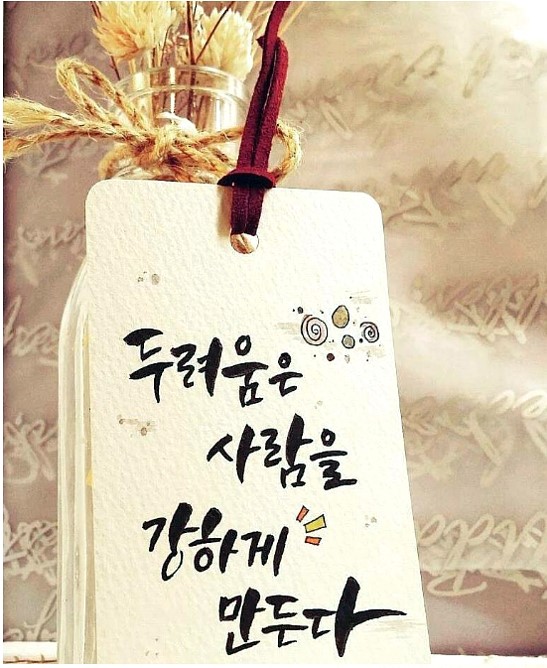 두려움은
사람을
강하게
만든다